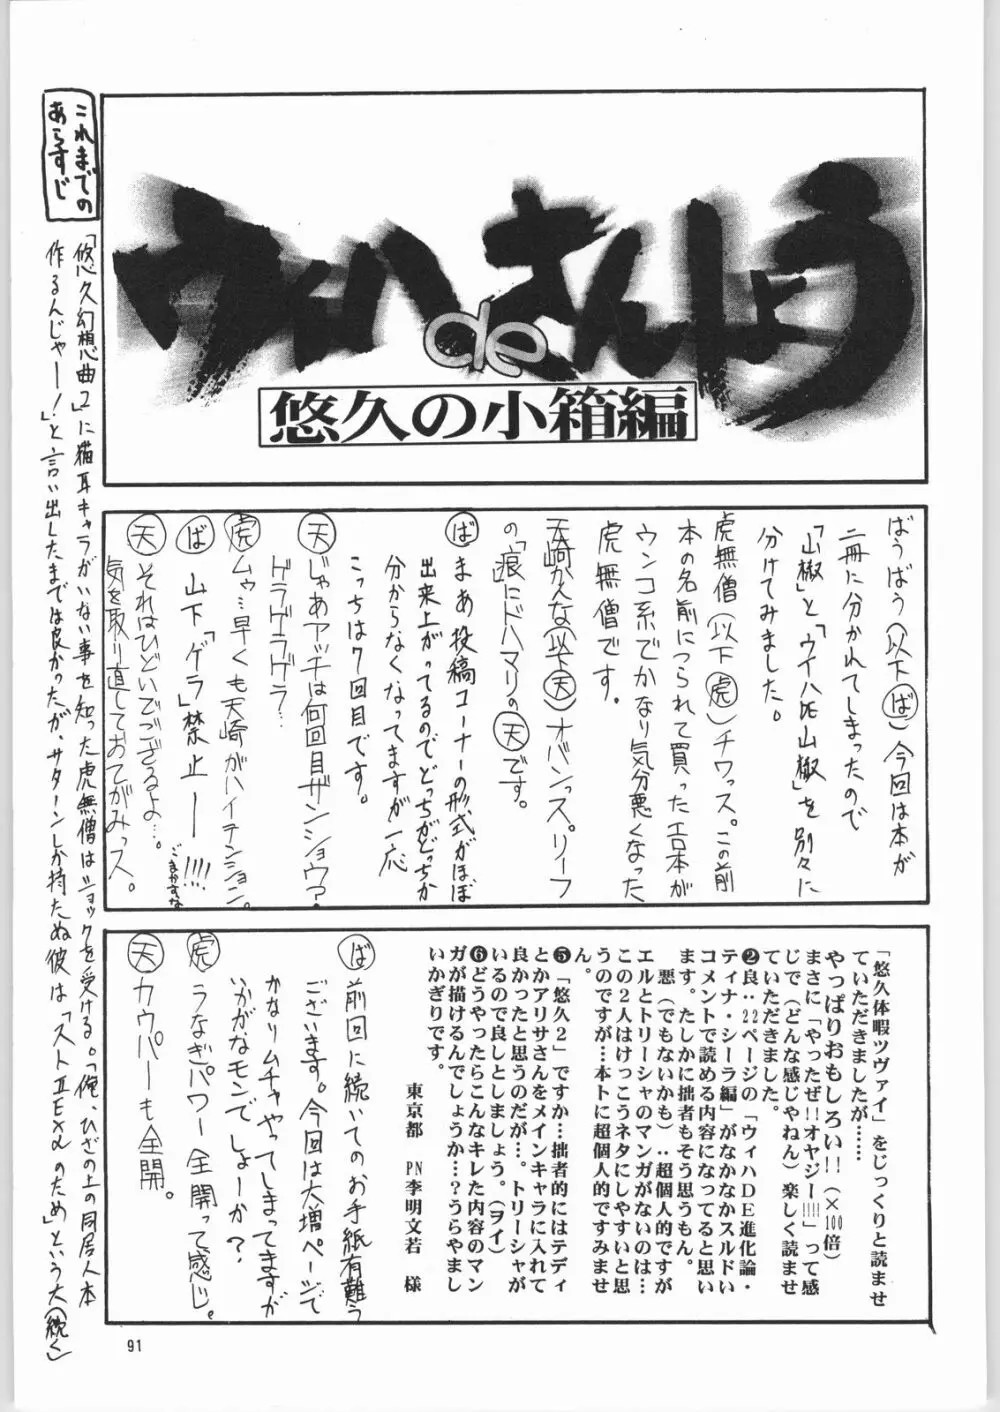 ウィハ de さんしょう
悠久の小箱編
ばうばう（以下ば）今回は本が
二冊に分かれてしまったので
「山椒」と「ウイハDE山椒」を別々に
分けてみました。
虎無僧（以下虎）チワッス。この前
本の名前につられて買ったエロ本が
ウンコ系でかなり気分悪くなった
虎無僧です。
天崎かんな（以下天）オバンっス。リーフ
の「痕」にドハマリの天です。
ば まあ、投稿コーナーの形式がほぼ
出来上がってるのでどっちがどっちか
分からなくなってますが一応
こっちは７回目です。
天 じゃあアッチは何回目ザンショウ？
ゲラゲラゲラ…
虎 ムゥ…早くも天崎がハイテンション。
ば 山下「ゲラ」禁止ー!!!!
ごまかすな
天 それはひどいでござるよ…。
気を取り直しておてがみっス。
「悠久休暇ツヴァイ」をじっくりと読ませ
ていただきましたが……
やっぱりおもしろい!!（×100倍）
まさに「やったぜ!!オヤジー!!!!」って感
じで（どんな感じやねん）楽しく読ませ
ていただきました。
❷良‥22ページの「ウィハDE進化論・
ティナ・シーラ編」がなかなかスルドい
コメントで読める内容になってると思い
ます。たしかに拙者もそう思うもん。
悪（でもないかも）‥超個人的ですが
エルとトリーシャのマンガがないのは…
この２人はけっこうネタにしやすいと思
うのですが…本トに超個人的ですみませ
ん。
❺「悠久２」ですか…拙者的にはテディ
とかアリサさんをメインキャラに入れて
良かったと思うのだが…。トリーシャが
いるので良しとしましょう。（ヲイ）
❻どうやったらこんなキレた内容のマン
ガが描けるんでしょうか…？うらやまし
いかぎりです。
東京都 PN李明文若 様
ば 前回に続いてのお手紙有難う
ございます。今回は大増ページで
かなりムチャやってしまってますが
いかがなモンでしょーか？
虎 うなぎパワー全開って感じ。
天 カウパーも全開。
これまでの
あらすじ
「悠久幻想曲２」に猫耳キャラがいない事を知った虎無僧はショックを受ける。「俺、ひざの上の同居人本
作るんじゃー！」と言い出したまでは良かったが、サターンしか持たぬ彼は「ストⅡEXαのため」という大（続く）
91